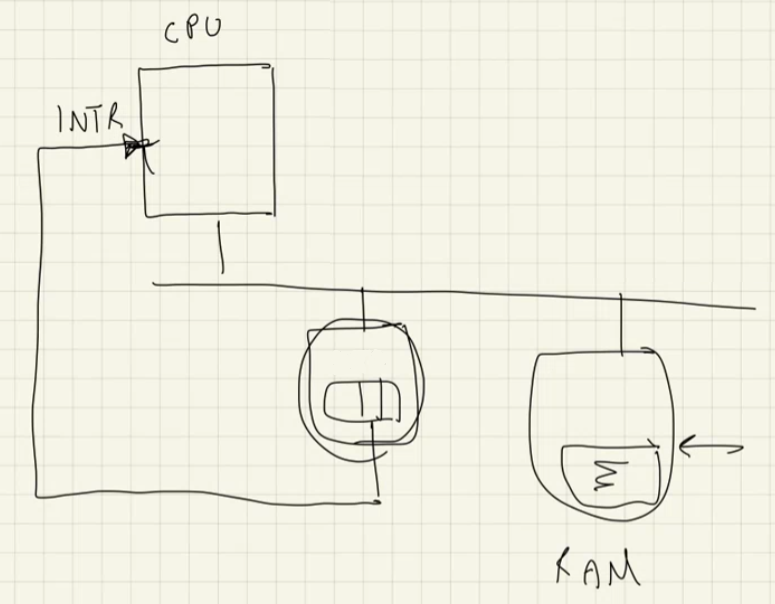 CPU
INTR
RAM